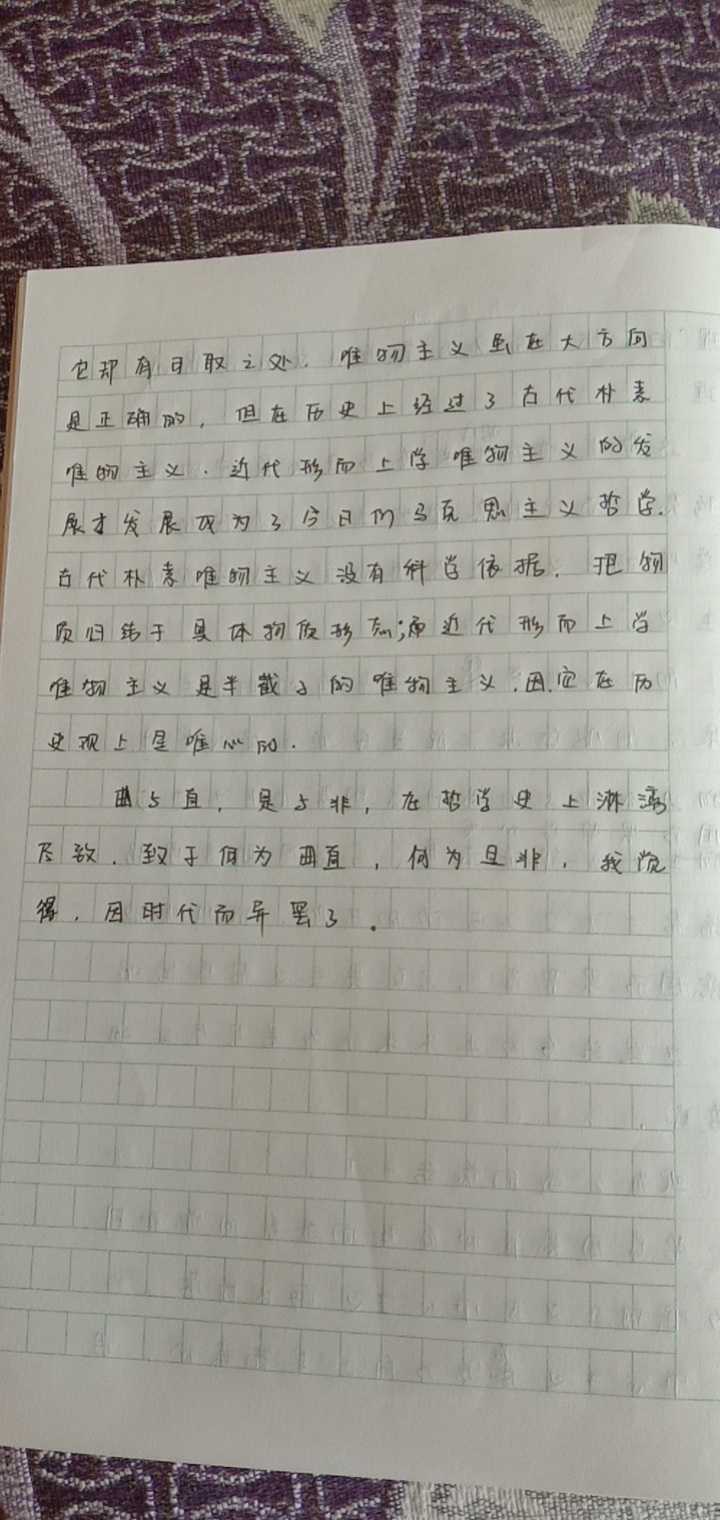 它却有可取之处. 唯物主义虽在大方向
是正确的, 但在历史上经过了古代朴素
唯物主义. 近代形而上学唯物主义的发
展才发展成为了今日的马克思主义哲学.
古代朴素唯物主义没有科学依据. 把物
质归结于具体物质形态;而近代形而上学
唯物主义是半截子的唯物主义.因.它在历
史观上是唯心的.
曲与直, 是与非, 在哲学史上淋漓
尽致. 致于何为曲直, 何为是非, 我觉
得, 因时代而异罢了.